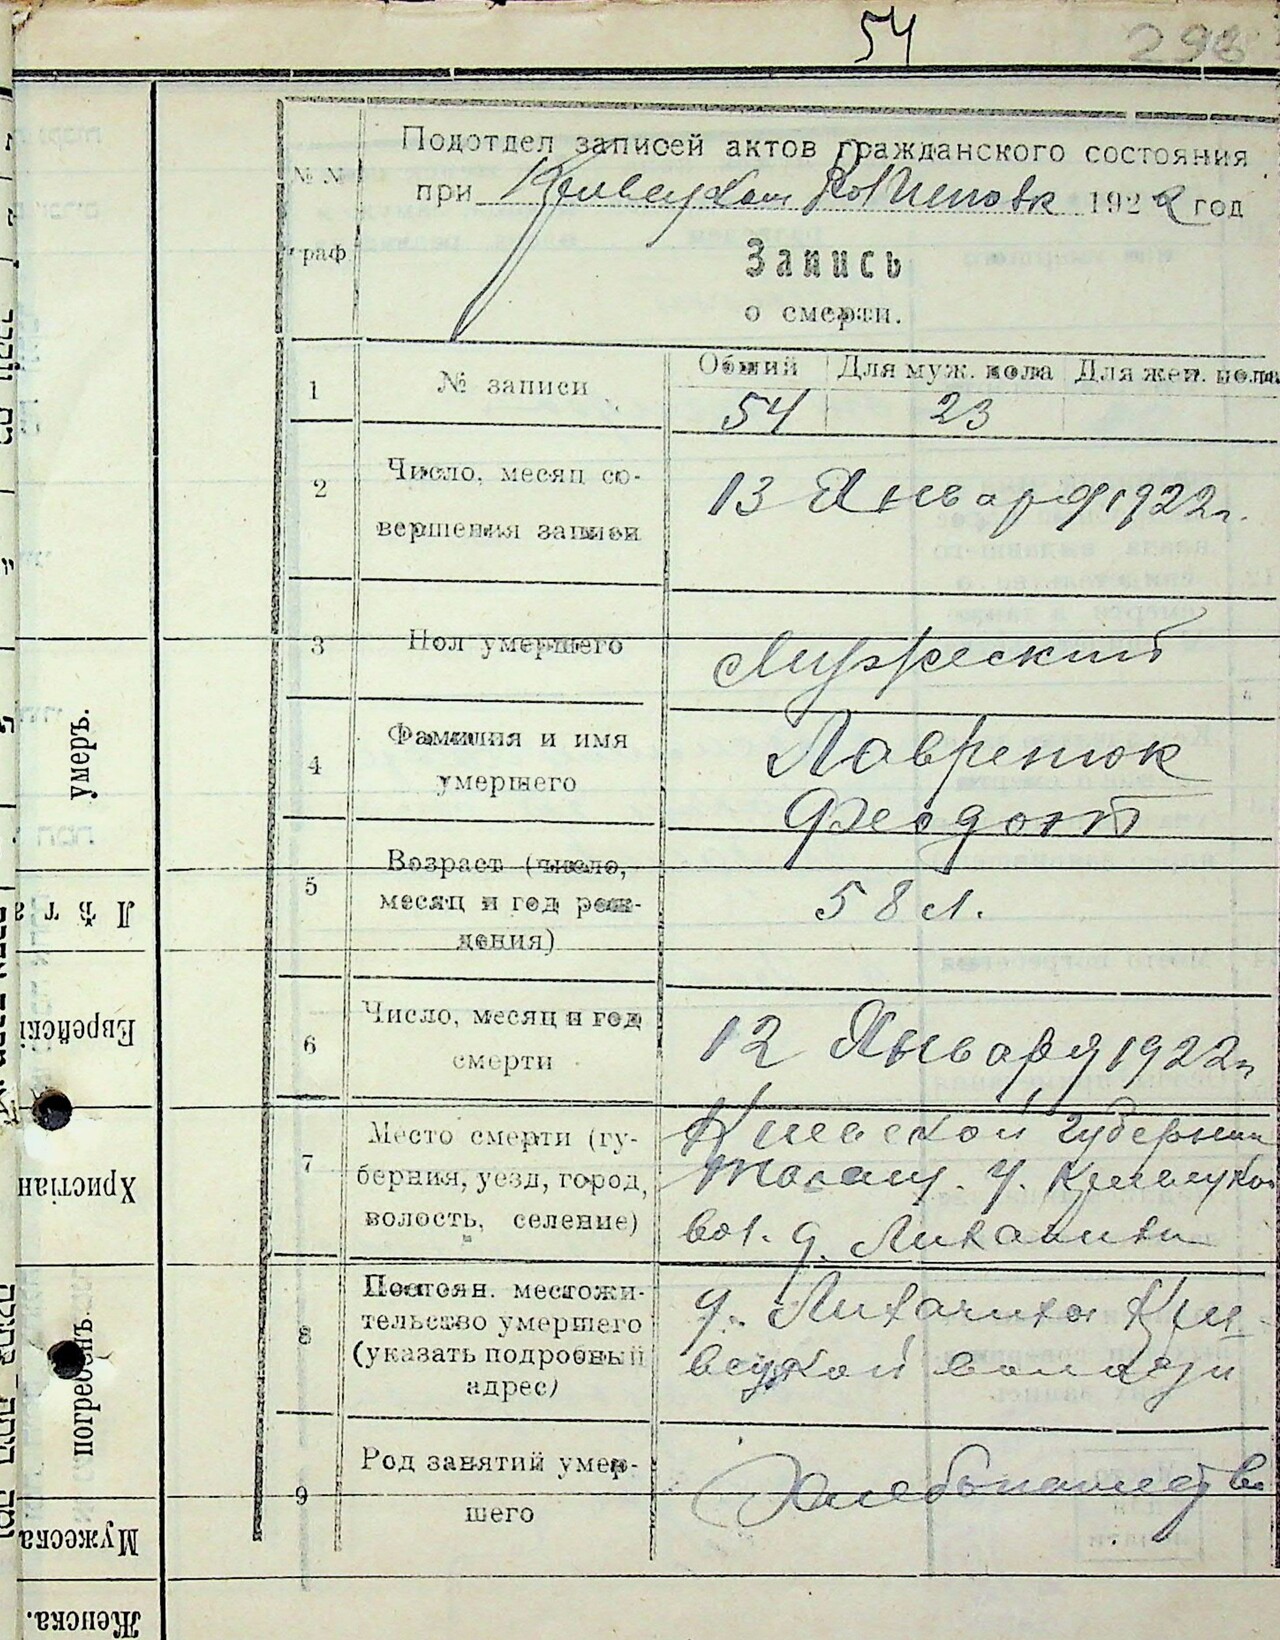 54
298
Подотдел записей актов гражданского состояния
при 1922 год
№ №
граф
Запись
о смерти.
1 № записи Общий Для муж. пола Для жен. пола
54 23
2 Число, месяц со-
вершения записи
13 Января 1922 г.
3 Пол умершего Мужеский
4 Фамилия и имя
умершего
Лавренюк
Феодот
5 Возраст (число,
месяц и год рож-
дения)
58 л.
6 Число, месяц и год
смерти
12 Января 1922 г
7 Место смерти (гу-
берния, уезд, город,
волость, селение)
Киевской губернии
у.
вол. д.
8 Постоян. местожи-
тельство умершего
(указать подробный
адрес)
д.
9 Род занятий умер-
шего
умеръ.
Лѣта
Еврейскі
Христіан
погребенъ
Мужеска
Женска.